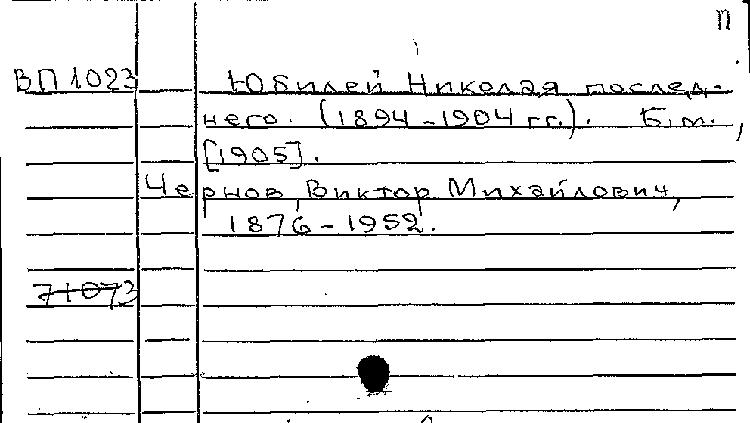 п
ВП 1023 Юбилей Николая послед-
него. (1894-1904 гг.). Б.м.,
[1905].
Чернов, Виктор Михайлович,
1876-1952.
71073